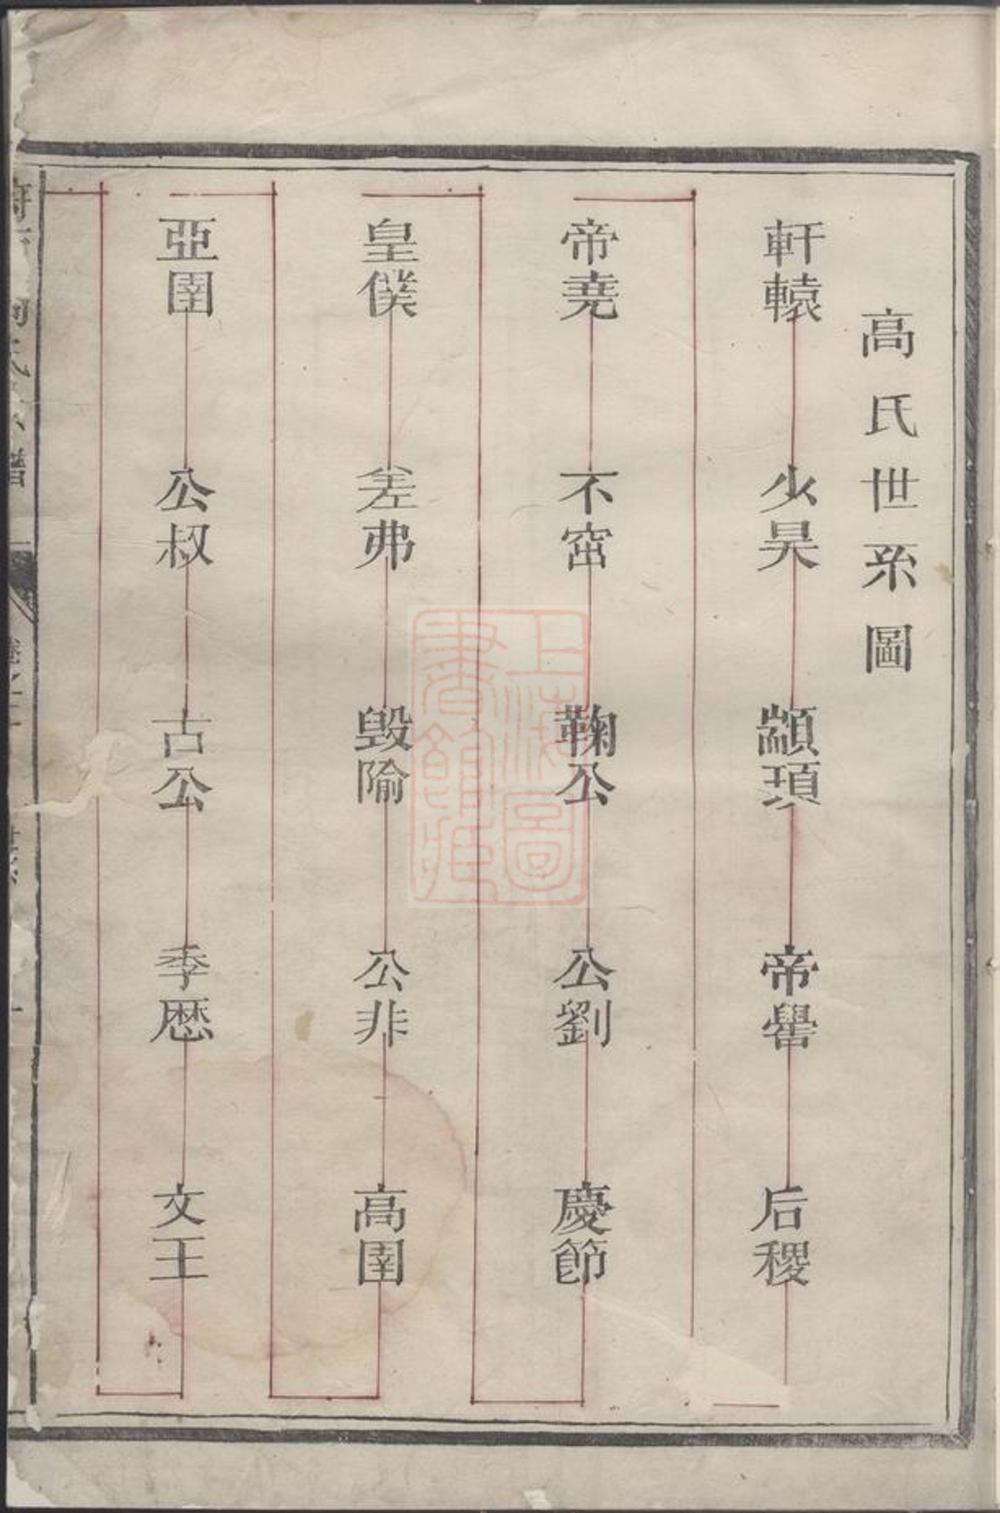 高氏世系圖
軒轅 少昊 顓頊 帝嚳 后稷
帝堯 不窋 鞠公 公劉 慶節
皇僕 差弗 毀隃 公非 高圉
亞圉 公叔 古公 季歷 文王
上海圖書館藏